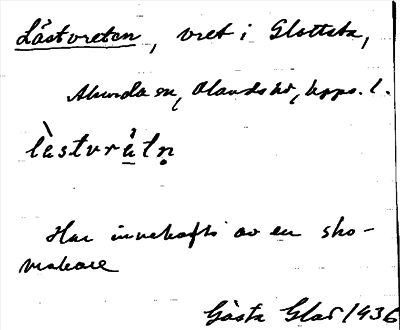 Lästvreten, vret i Slottsta,
Akerda sn, Olands hd, Upps. l.
lästvrètn
Har innehafts av en sko-
makare
Gösta Glad 1936